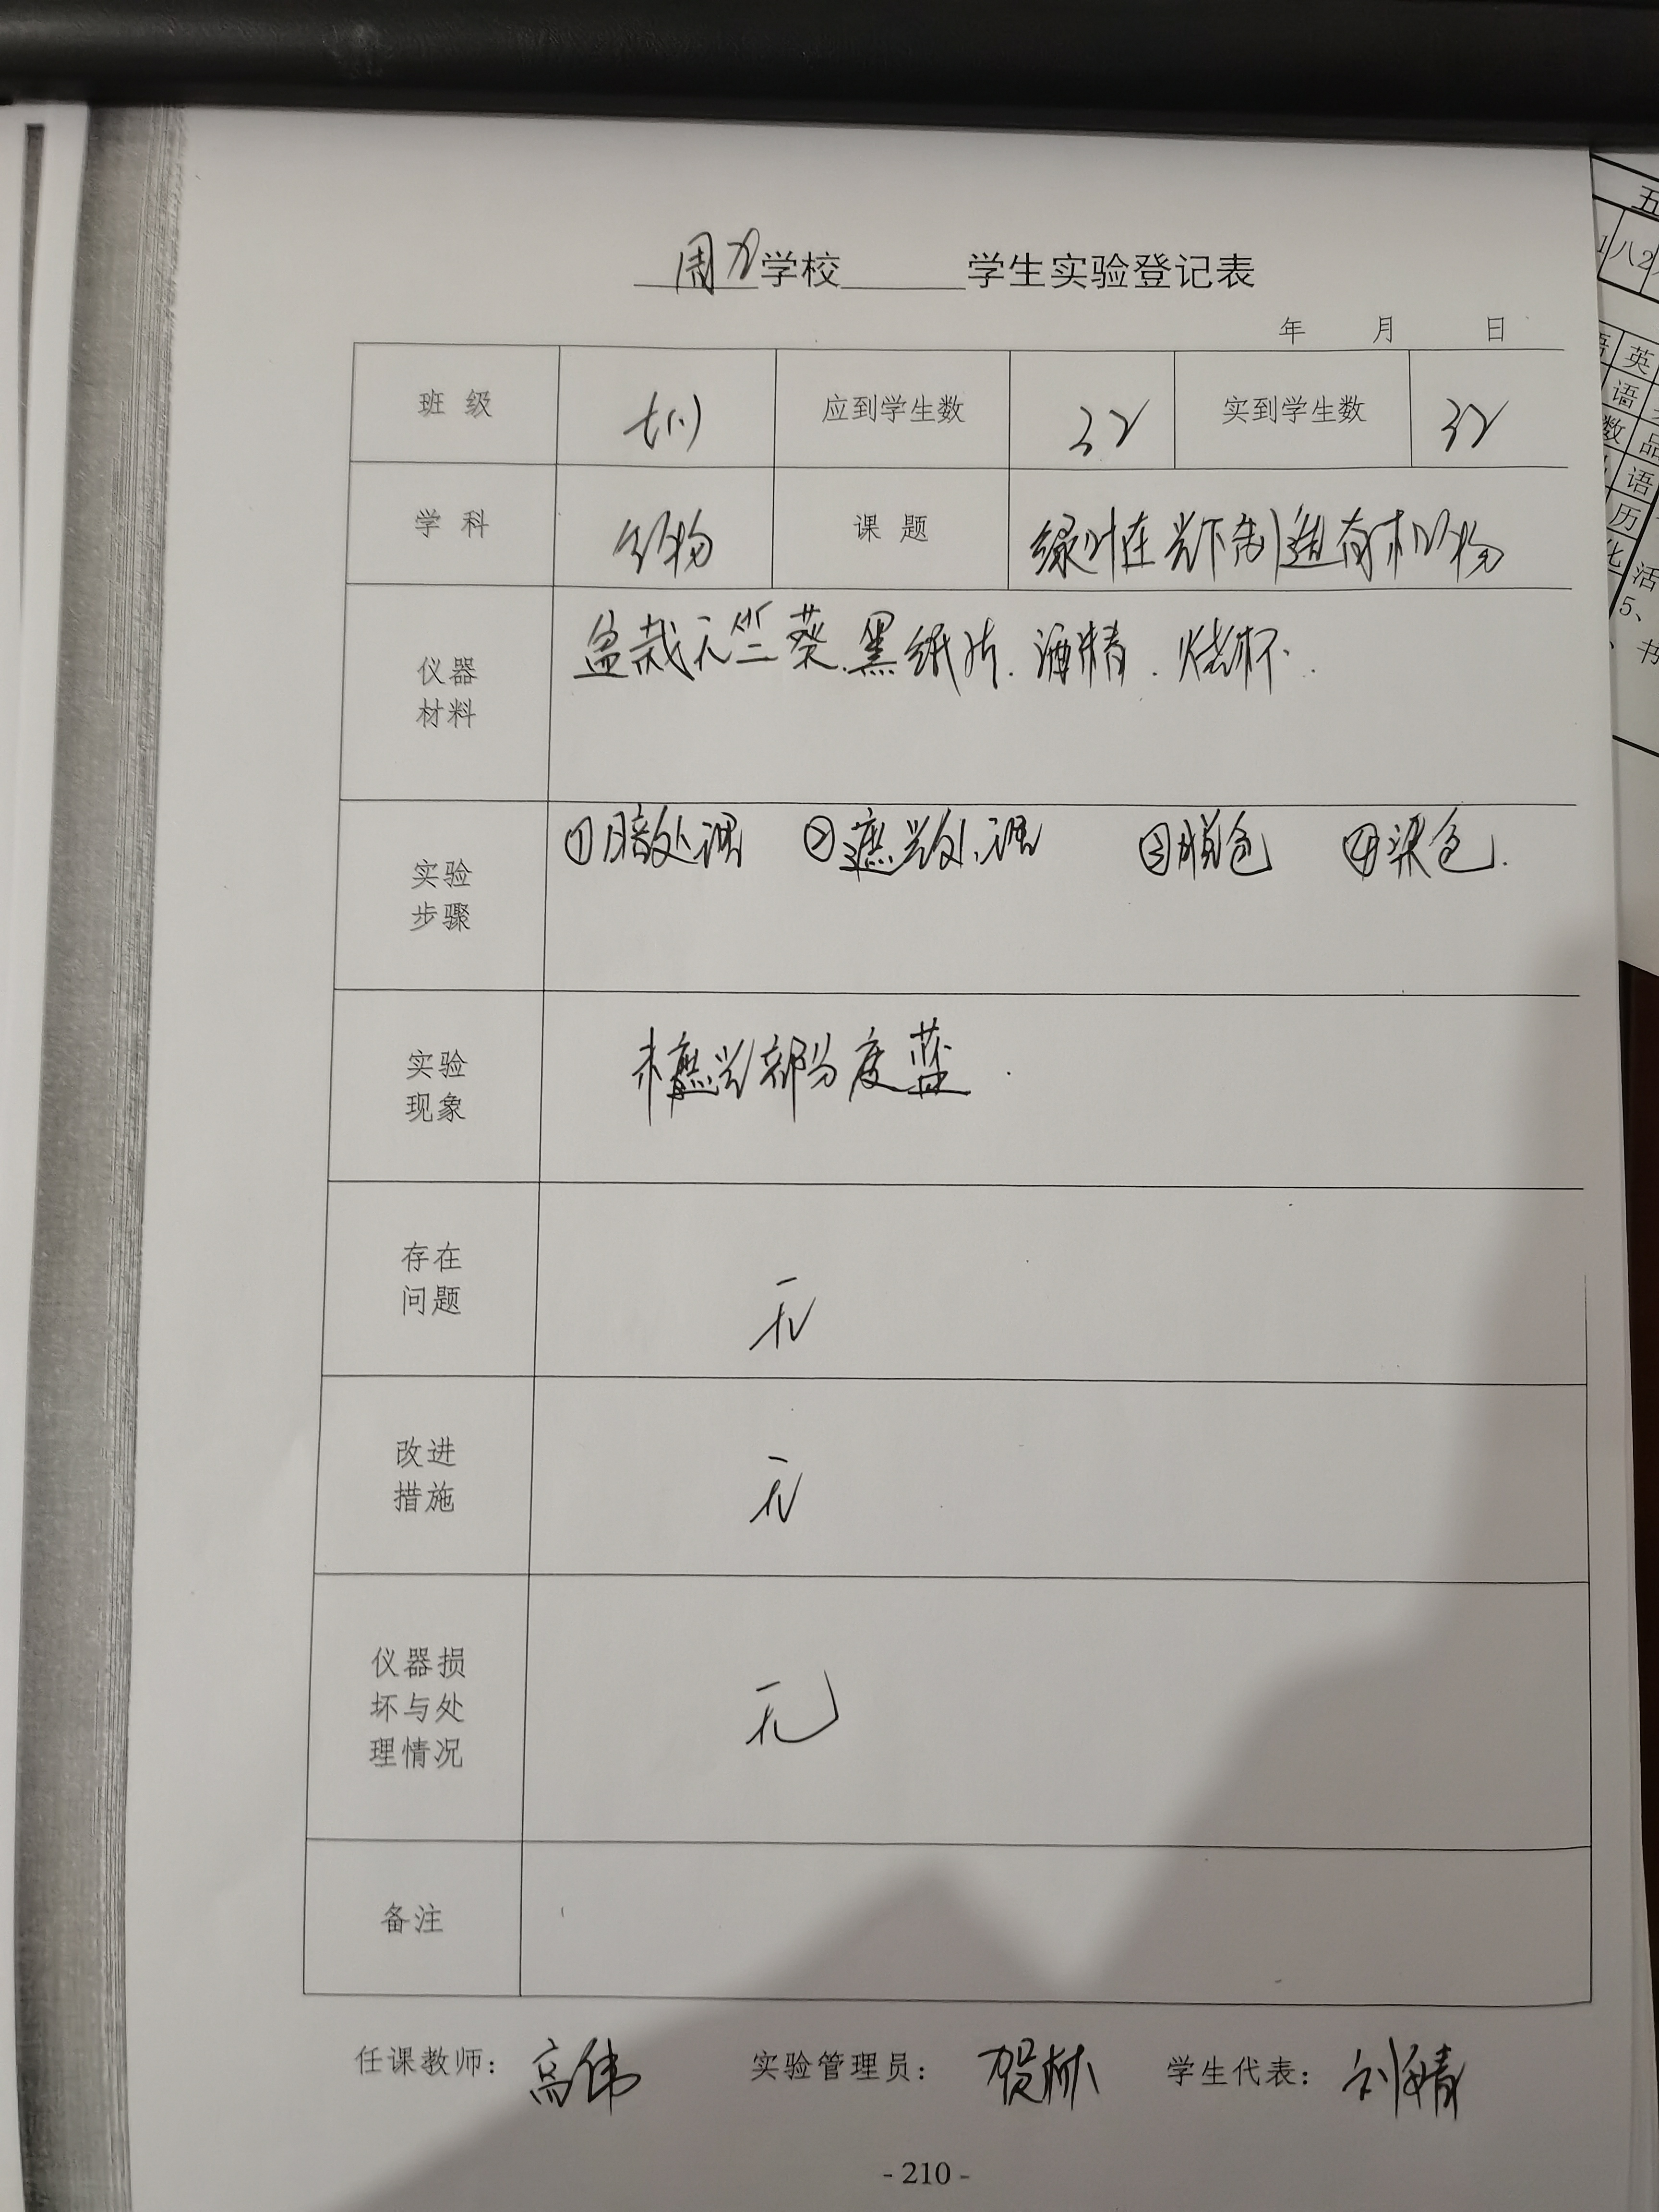 周力学校 学生实验登记表
年 月 日
班 级 七(1) 应到学生数 32 实到学生数 32
学 科 生物 课 题 绿叶在光下制造有机物
仪器
材料
盆栽天竺葵.黑纸片.酒精.烧杯.
实验
步骤
①暗处理 ②遮光处理 ③脱色 ④染色.
实验
现象
未遮光部分变蓝.
存在
问题
无
改进
措施
无
仪器损
坏与处
理情况
无
备注
任课教师: 高伟 实验管理员: 贺林 学生代表: 刘倩
- 210 -
五
八2
英
语
数
品
语
历
化
活
5、
书